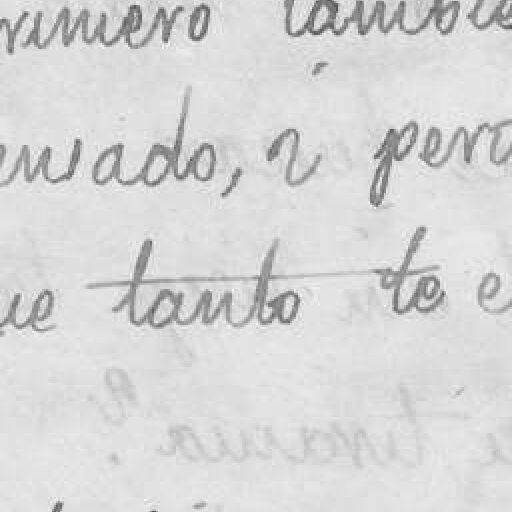 rimero tambie
ensado, ¿ pero
ue tanto te e